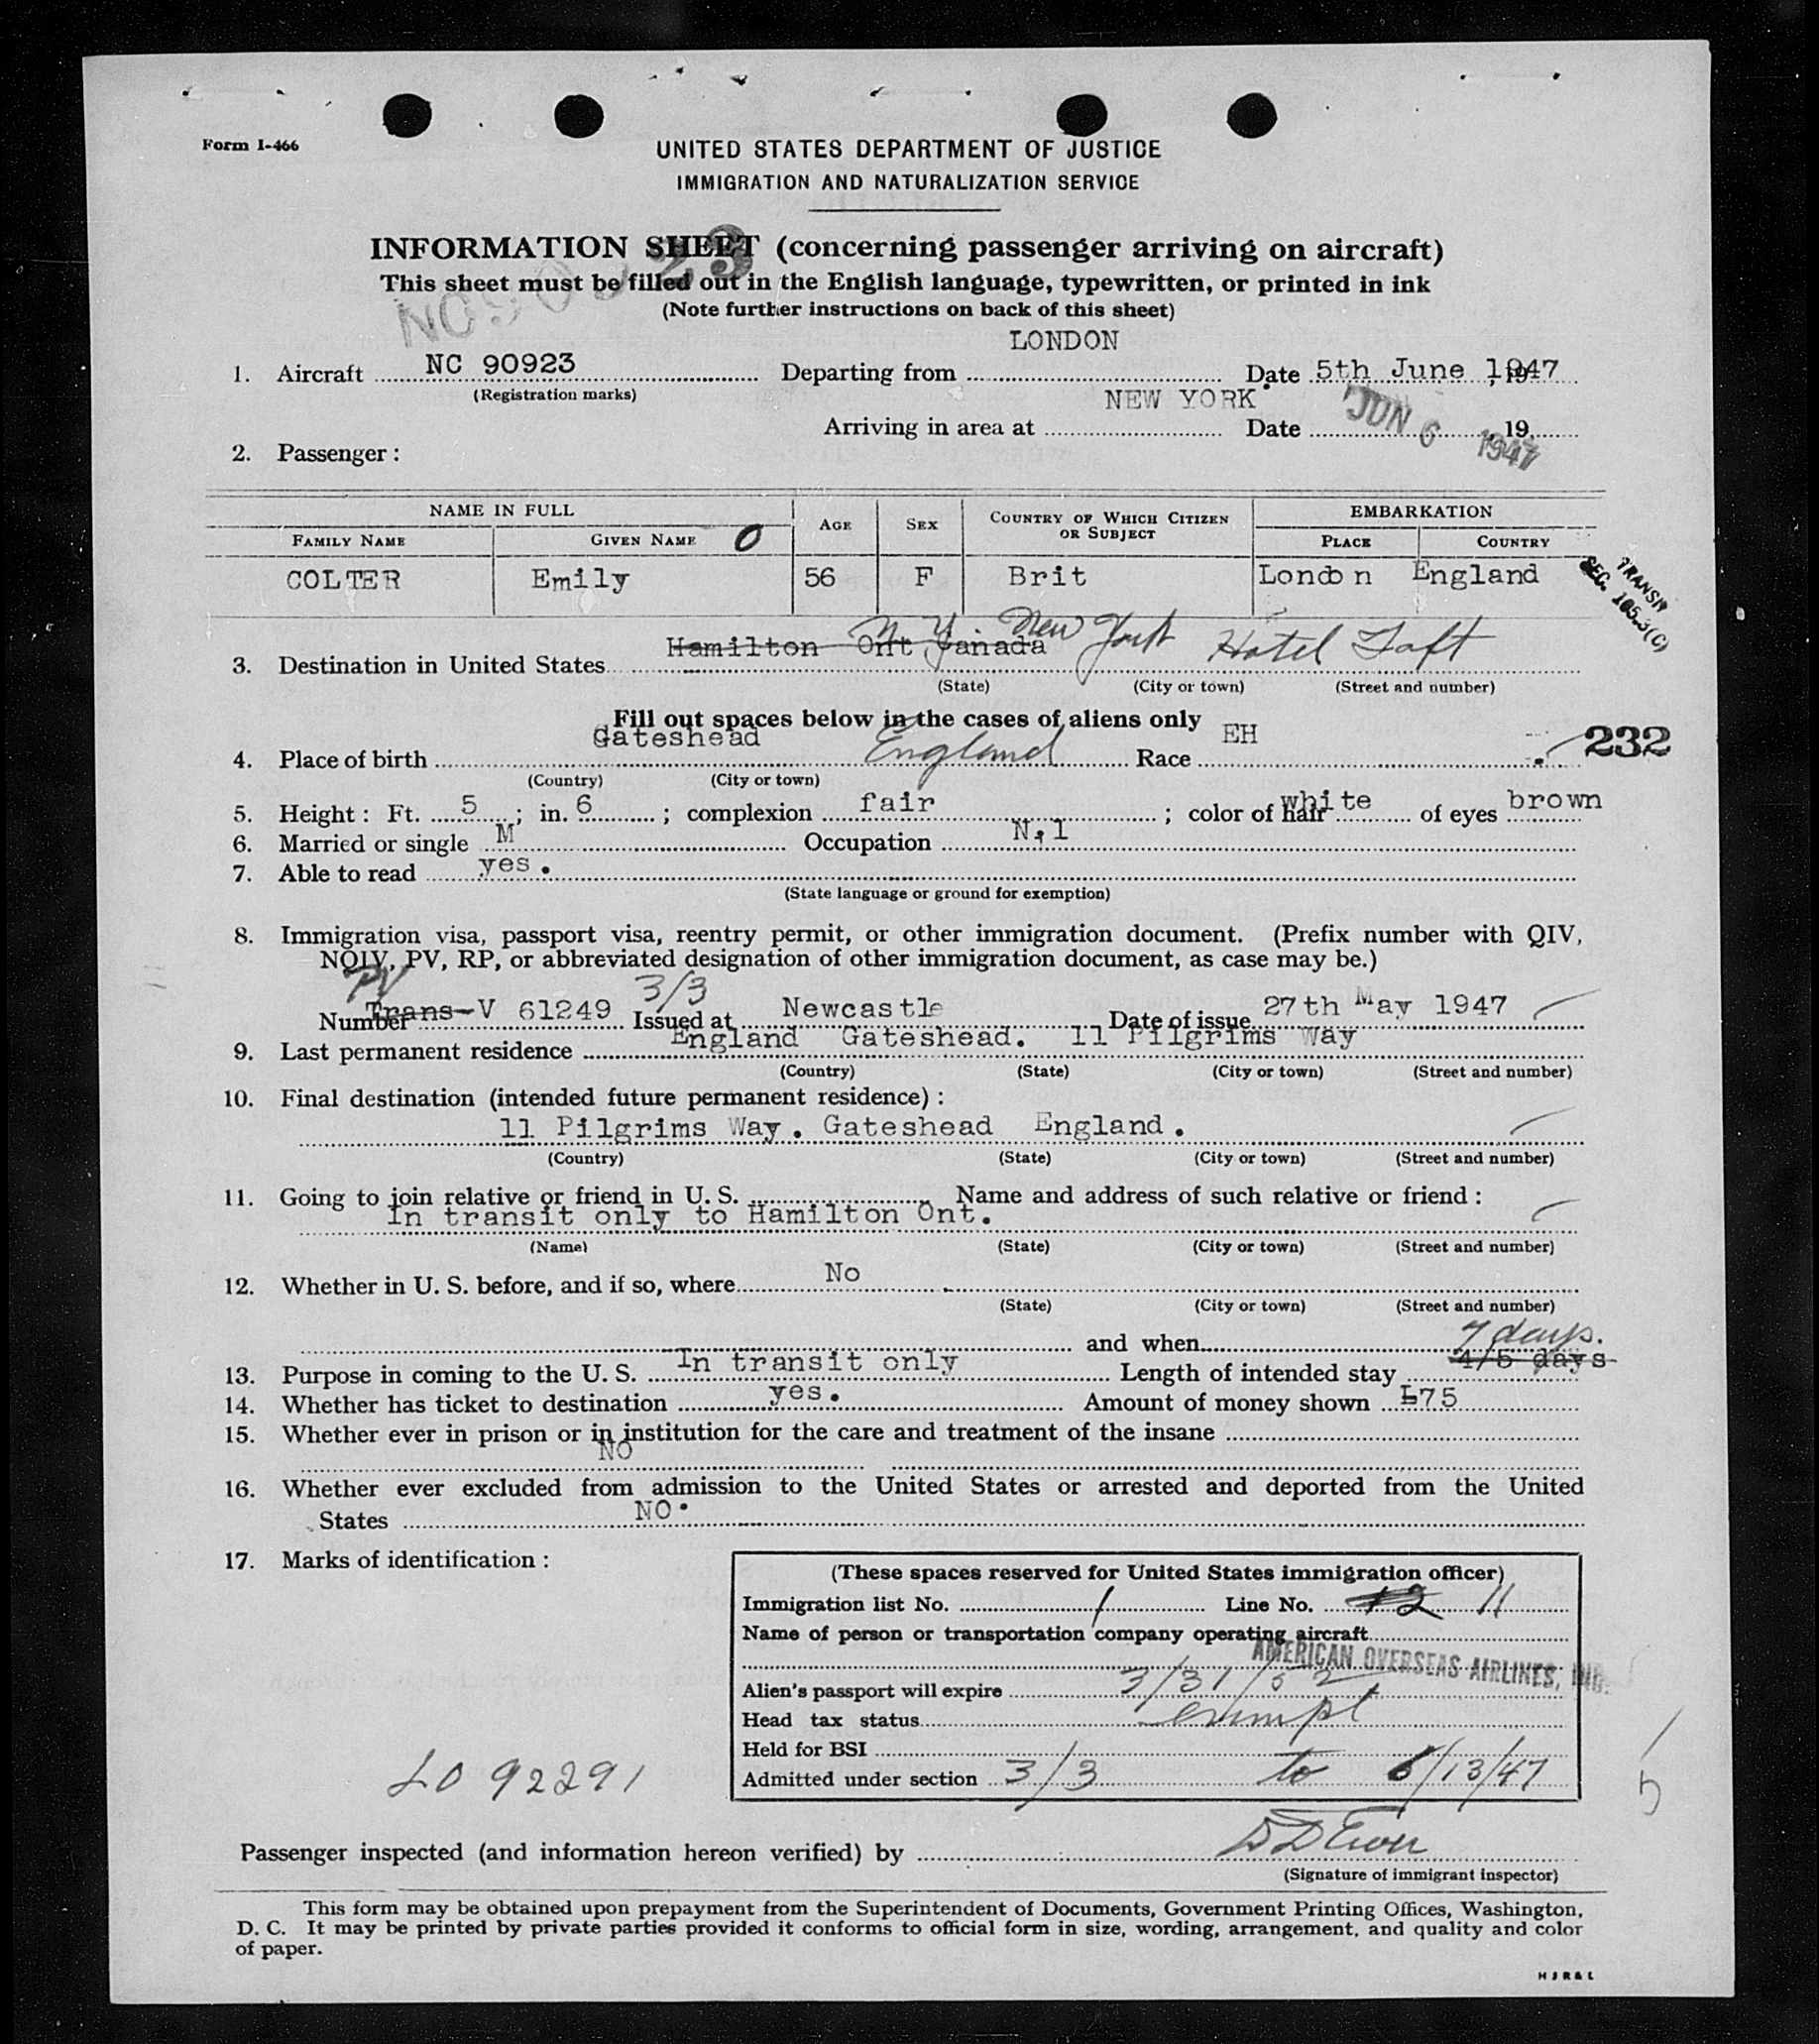 Form I-466
UNITED STATES DEPARTMENT OF JUSTICE
IMMIGRATION AND NATURALIZATION SERVICE
INFORMATION SHEET (concerning passenger arriving on aircraft)
This sheet must be filled out in the English language, typewritten, or printed in ink
(Note further instructions on back of this sheet)
LONDON
1. Aircraft NC 90923 Departing from Date 5th June 1947
(Registration marks)
NEW YORK
Arriving in area at Date JUN 6 1947 , 19
2. Passenger :
NAME IN FULL
AGE SEX COUNTRY OF WHICH CITIZEN OR SUBJECT EMBARKATION
FAMILY NAME GIVEN NAME O PLACE COUNTRY
COLTER Emily 56 F Brit London England
TRANSIT
SEC. 165.3(C)
Hamilton Ont Canada N.Y. New York Hotel Taft
3. Destination in United States
(State) (City or town) (Street and number)
Fill out spaces below in the cases of aliens only
4. Place of birth Gateshead England Race EH 232
(Country) (City or town)
5. Height : Ft. 5 ; in. 6 ; complexion fair ; color of hair white of eyes brown
6. Married or single M Occupation N.l
7. Able to read yes.
(State language or ground for exemption)
8. Immigration visa, passport visa, reentry permit, or other immigration document. (Prefix number with QIV,
NQIV, PV, RP, or abbreviated designation of other immigration document, as case may be.)
PV 3/3
Number Trans-V 61249 Issued at Newcastle Date of issue 27th May 1947
9. Last permanent residence England Gateshead. 11 Pilgrims Way
(Country) (State) (City or town) (Street and number)
10. Final destination (intended future permanent residence) :
11 Pilgrims Way. Gateshead England.
(Country) (State) (City or town) (Street and number)
11. Going to join relative or friend in U. S. Name and address of such relative or friend :
In transit only to Hamilton Ont.
(Name) (State) (City or town) (Street and number)
12. Whether in U. S. before, and if so, where No
(State) (City or town) (Street and number)
and when
7 days.
13. Purpose in coming to the U. S. In transit only Length of intended stay 4/5 days
14. Whether has ticket to destination yes. Amount of money shown £75
15. Whether ever in prison or in institution for the care and treatment of the insane
NO
16. Whether ever excluded from admission to the United States or arrested and deported from the United
States NO.
17. Marks of identification :
(These spaces reserved for United States immigration officer)
Immigration list No. 1 Line No. 12 11
Name of person or transportation company operating aircraft
AMERICAN OVERSEAS AIRLINES, INC.
Alien's passport will expire 3/31/52
Head tax status exempt
Held for BSI
Admitted under section 3/3 to 6/13/47
LO 92291
Passenger inspected (and information hereon verified) by
(Signature of immigrant inspector)
This form may be obtained upon prepayment from the Superintendent of Documents, Government Printing Offices, Washington,
D. C. It may be printed by private parties provided it conforms to official form in size, wording, arrangement, and quality and color
of paper.
H J R & L